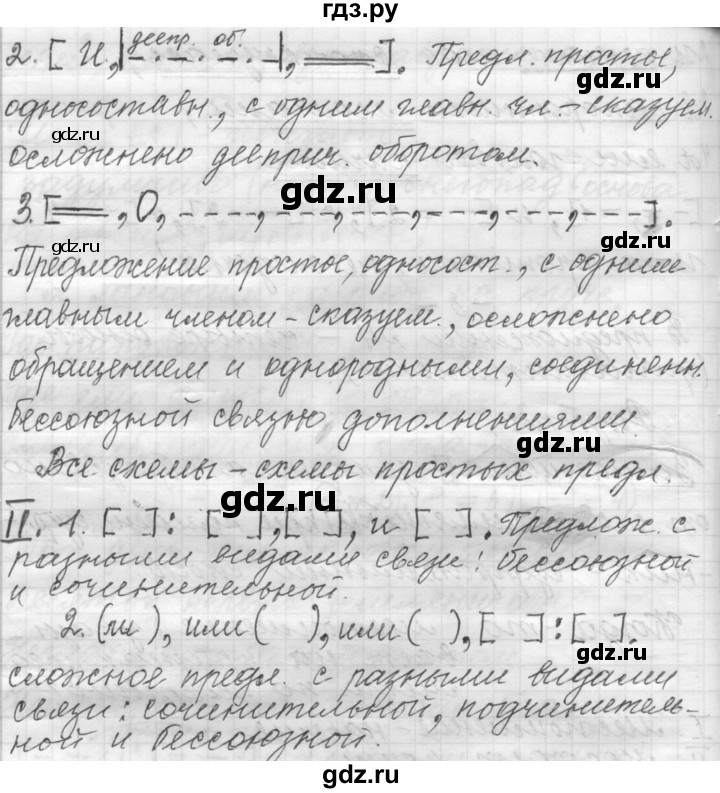 гдз.ру
2. [ И, |деепр. об.|, ═══ ]. Предл. простые,
gdz.ru
односоставн., с одним главн. чл. - сказуем.
gdz.ru
осложнено дееприч. оборотом.
gdz.ru
3. [═══, О, ----, ----, ----, ----, ----, ----].
gdz.ru
Предложение простое, односост., с одним
главным членом - сказуем., осложнено
обращением и однородными, соединенн.
gdz.ru
бессоюзной связью, дополнениями.
gdz.ru
Все схемы - схемы простых предл.
gdz.ru
II. 1. [ ]: [ ],[ ], и [ ]. Предлож. с
gdz.ru
разными видами связи: бессоюзной
и сочинительной.
2. (ли ), или ( ), или ( ), [ ]:[ ].
gdz.ru
сложное предл. с разными видами
связи: сочинительной, подчинитель-
ной и бессоюзной.
gdz.ru